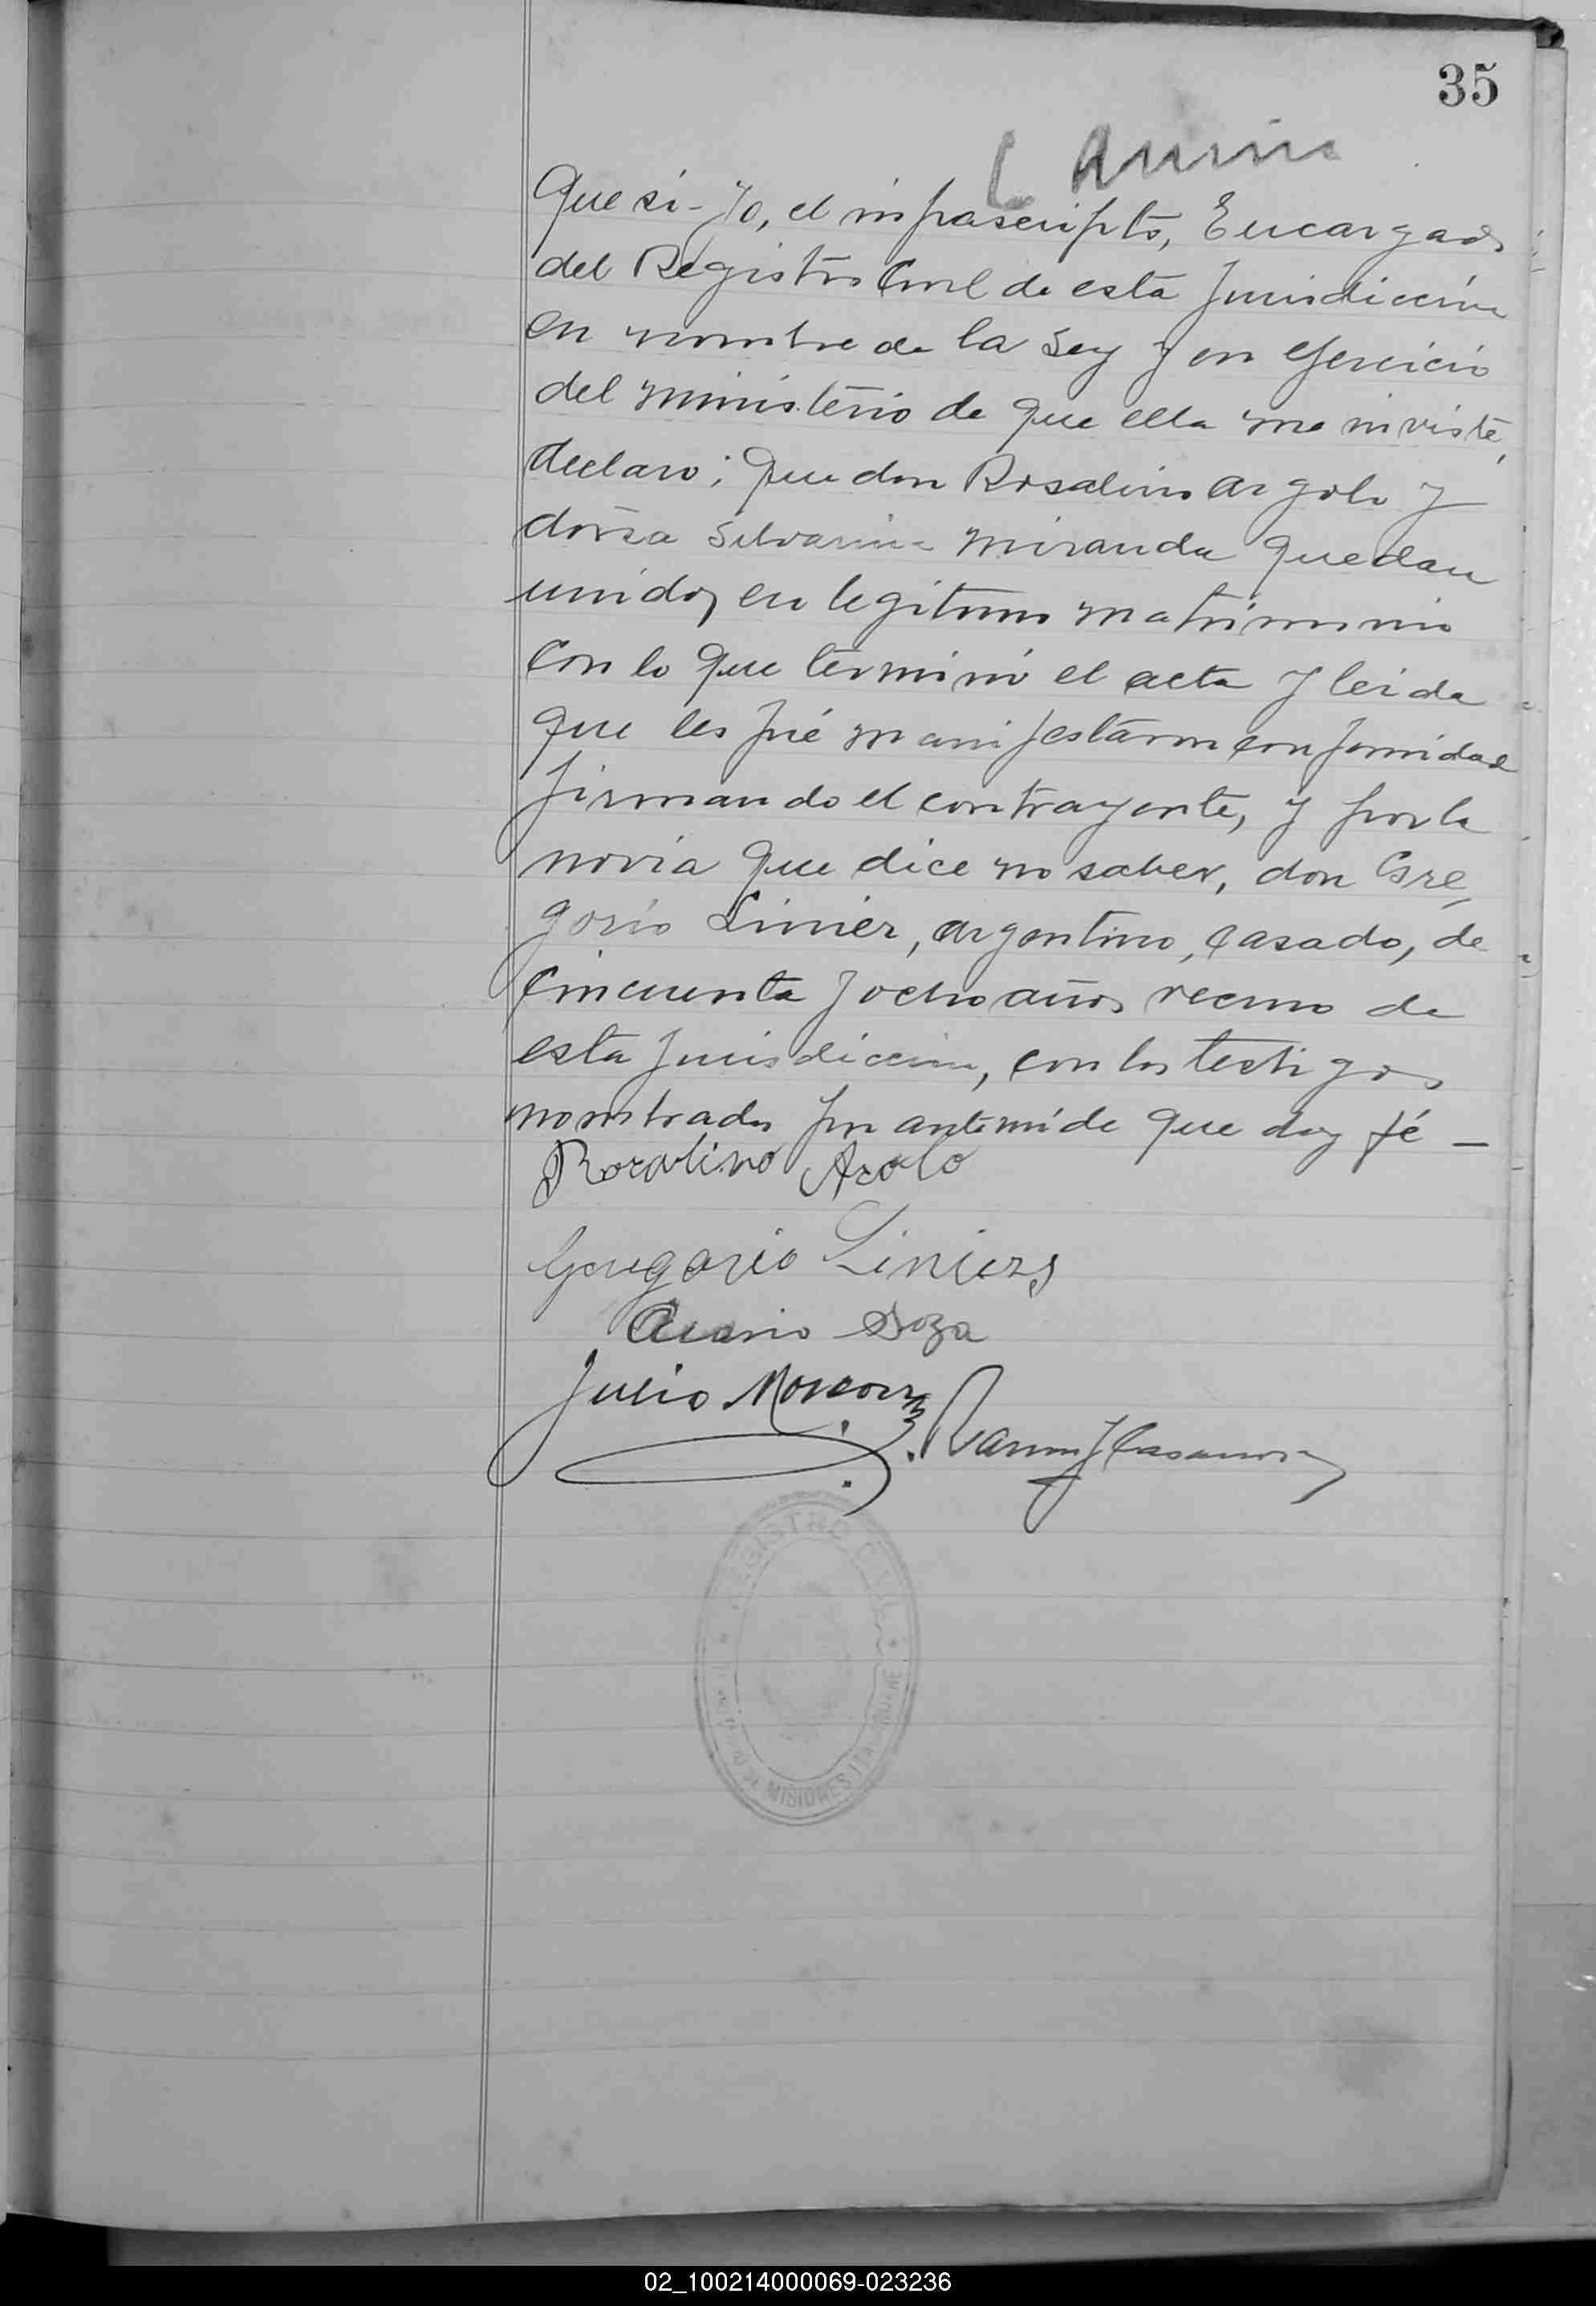 35
Que si - Yo, el infrascripto, Encargado
del Registro Civil de esta Jurisdicción
en nombre de la Ley y en ejercicio
del ministerio de que ella me inviste,
declaro; que don Rosalino Argolo y
doña Silvarina Miranda quedan
unidos en legitimo matrimonio
Con lo que terminó el acta y leida
que les fué manifestaron conformidad
firmando el contrayente, y por la
novia que dice no saber, don Gre,
gorio Linier, argentino, casado, de
Cincuenta y ocho años vecino de
esta Jurisdiccion, con los testigos
nombrados por ante mi de que doy fé -
Rozalino Arolo
Goregorio Liniers
Soza
Julio
Ramon J Casanova
REGISTRO CIVIL
MISIONES
02_100214000069-023236